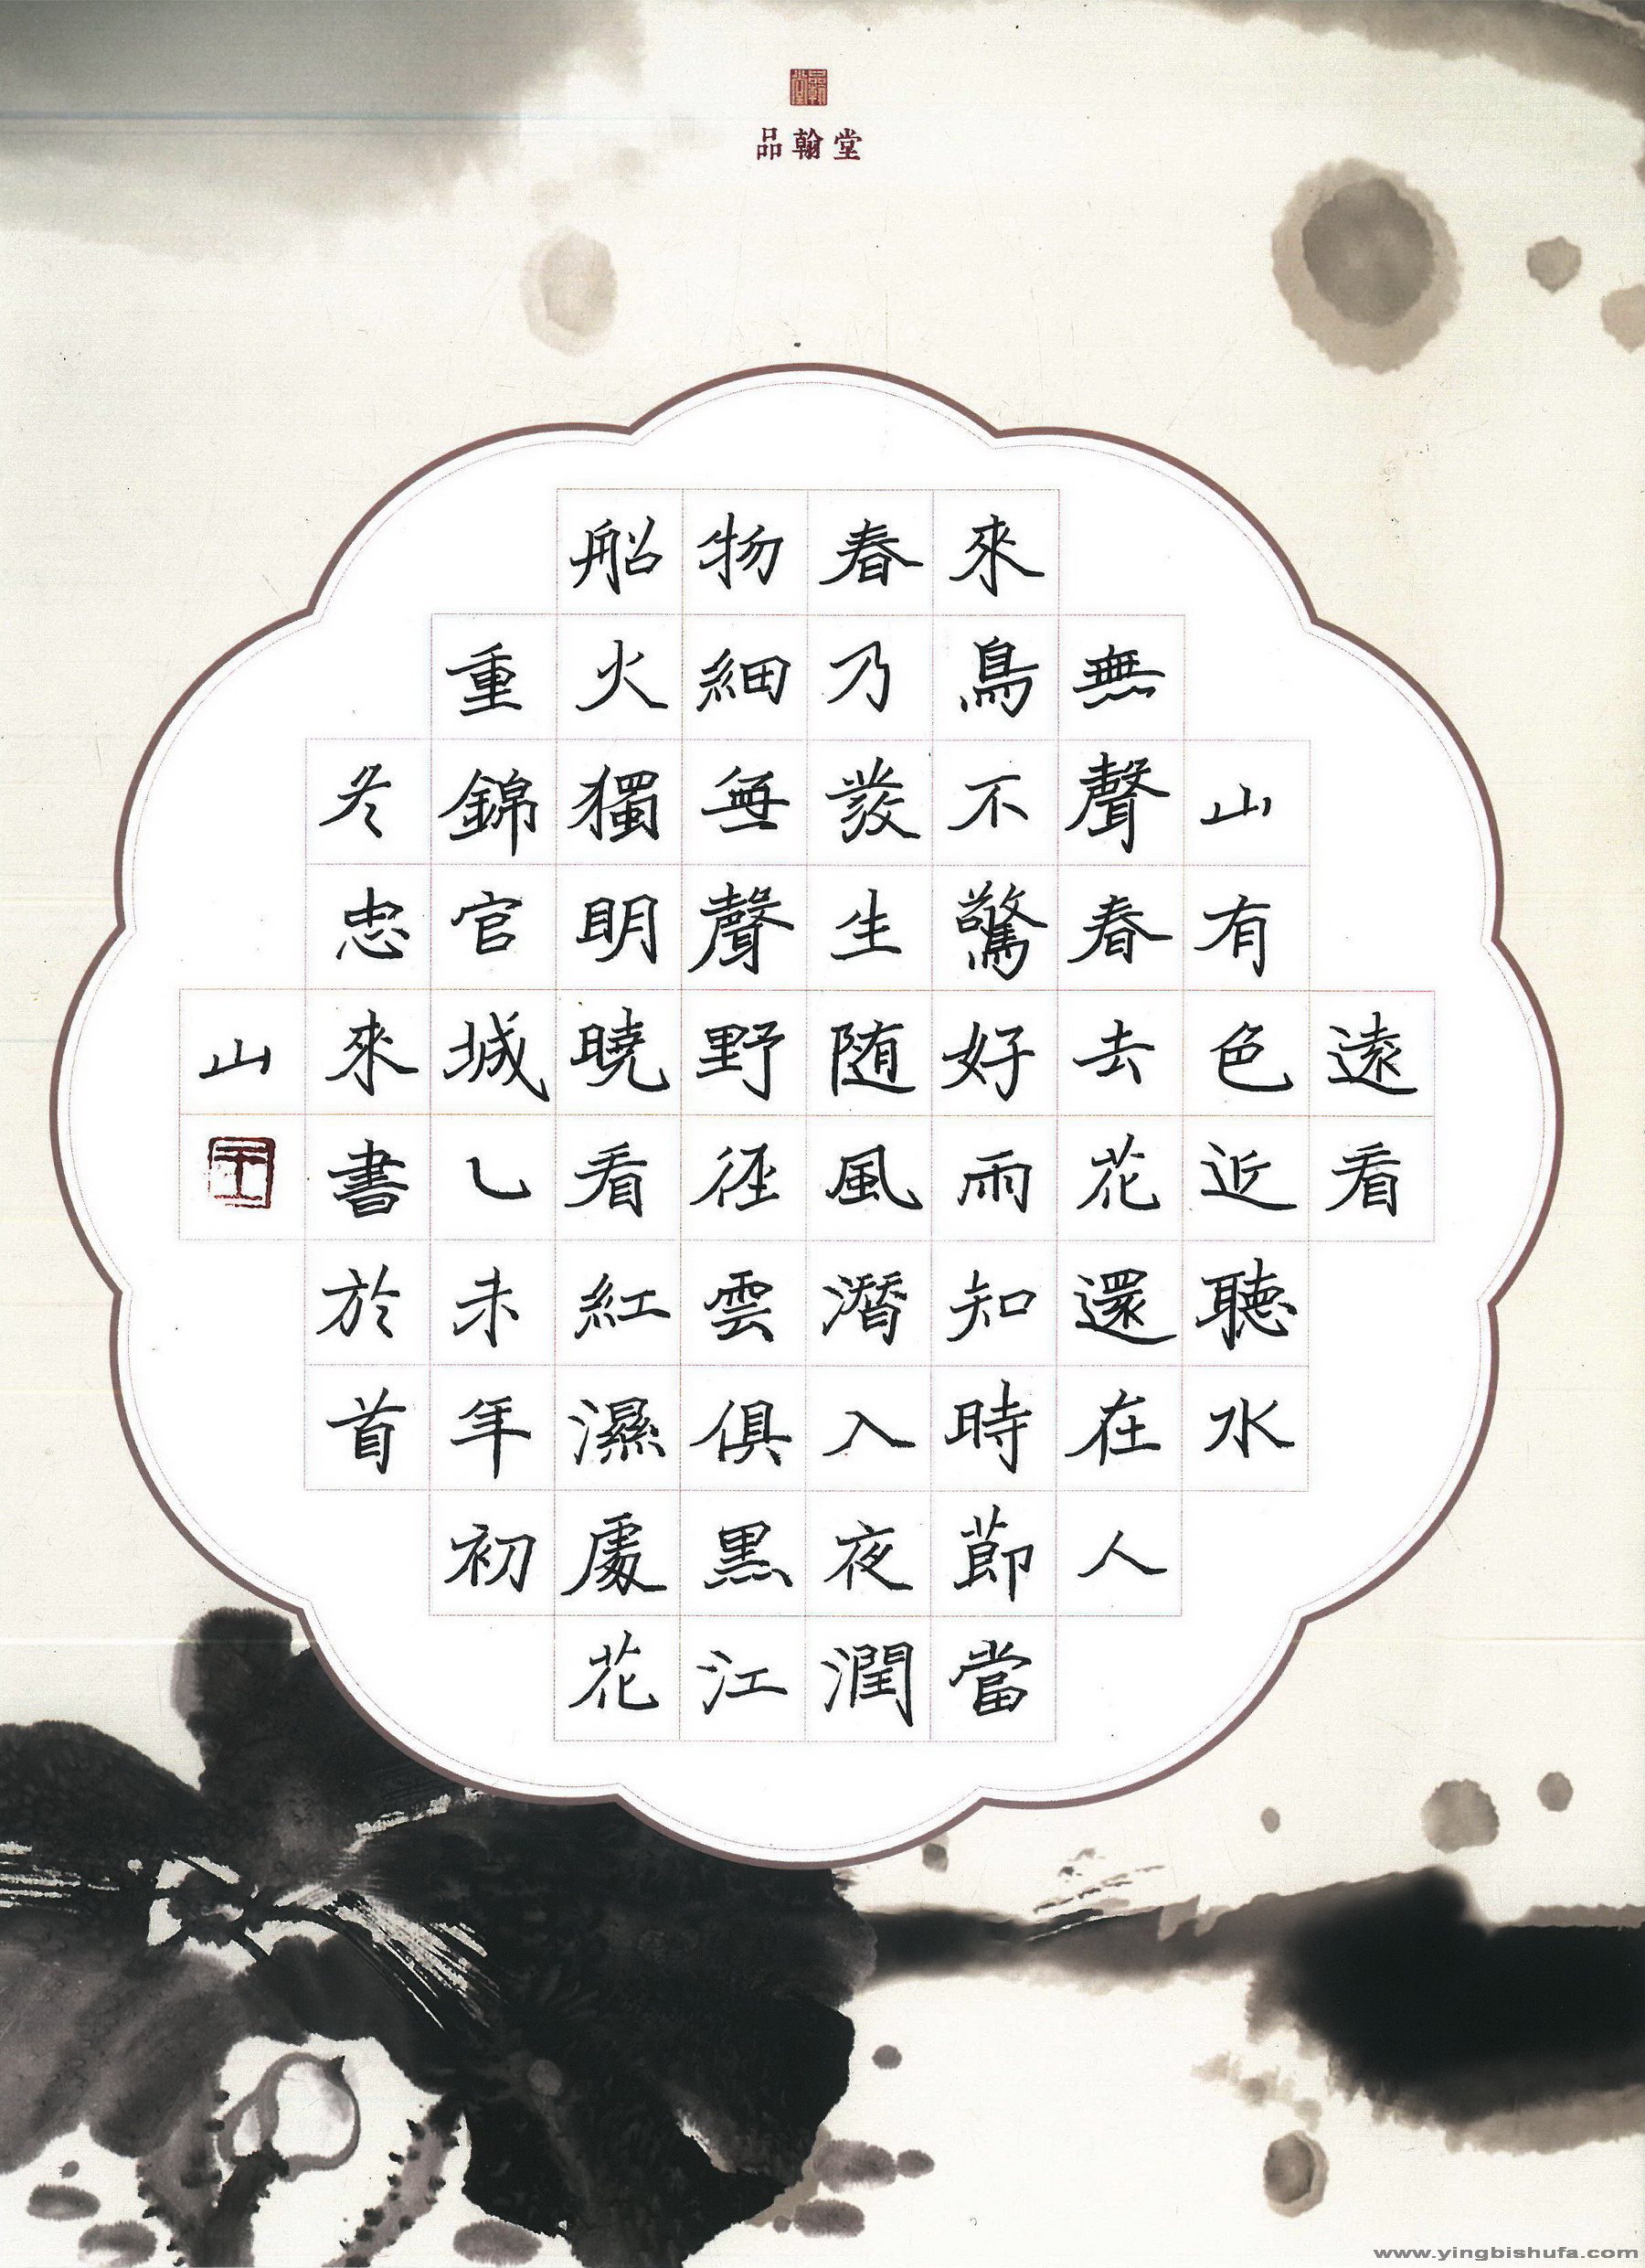 品翰堂
遠看
山有色近聽水
無聲春去花還在人
來鳥不驚好雨知時節當
春乃發生随風潛入夜潤
物細無聲野徑雲俱黑江
船火獨明曉看紅濕處花
重錦官城乙未年初
冬忠來書於首
山
www.yingbishufa.com